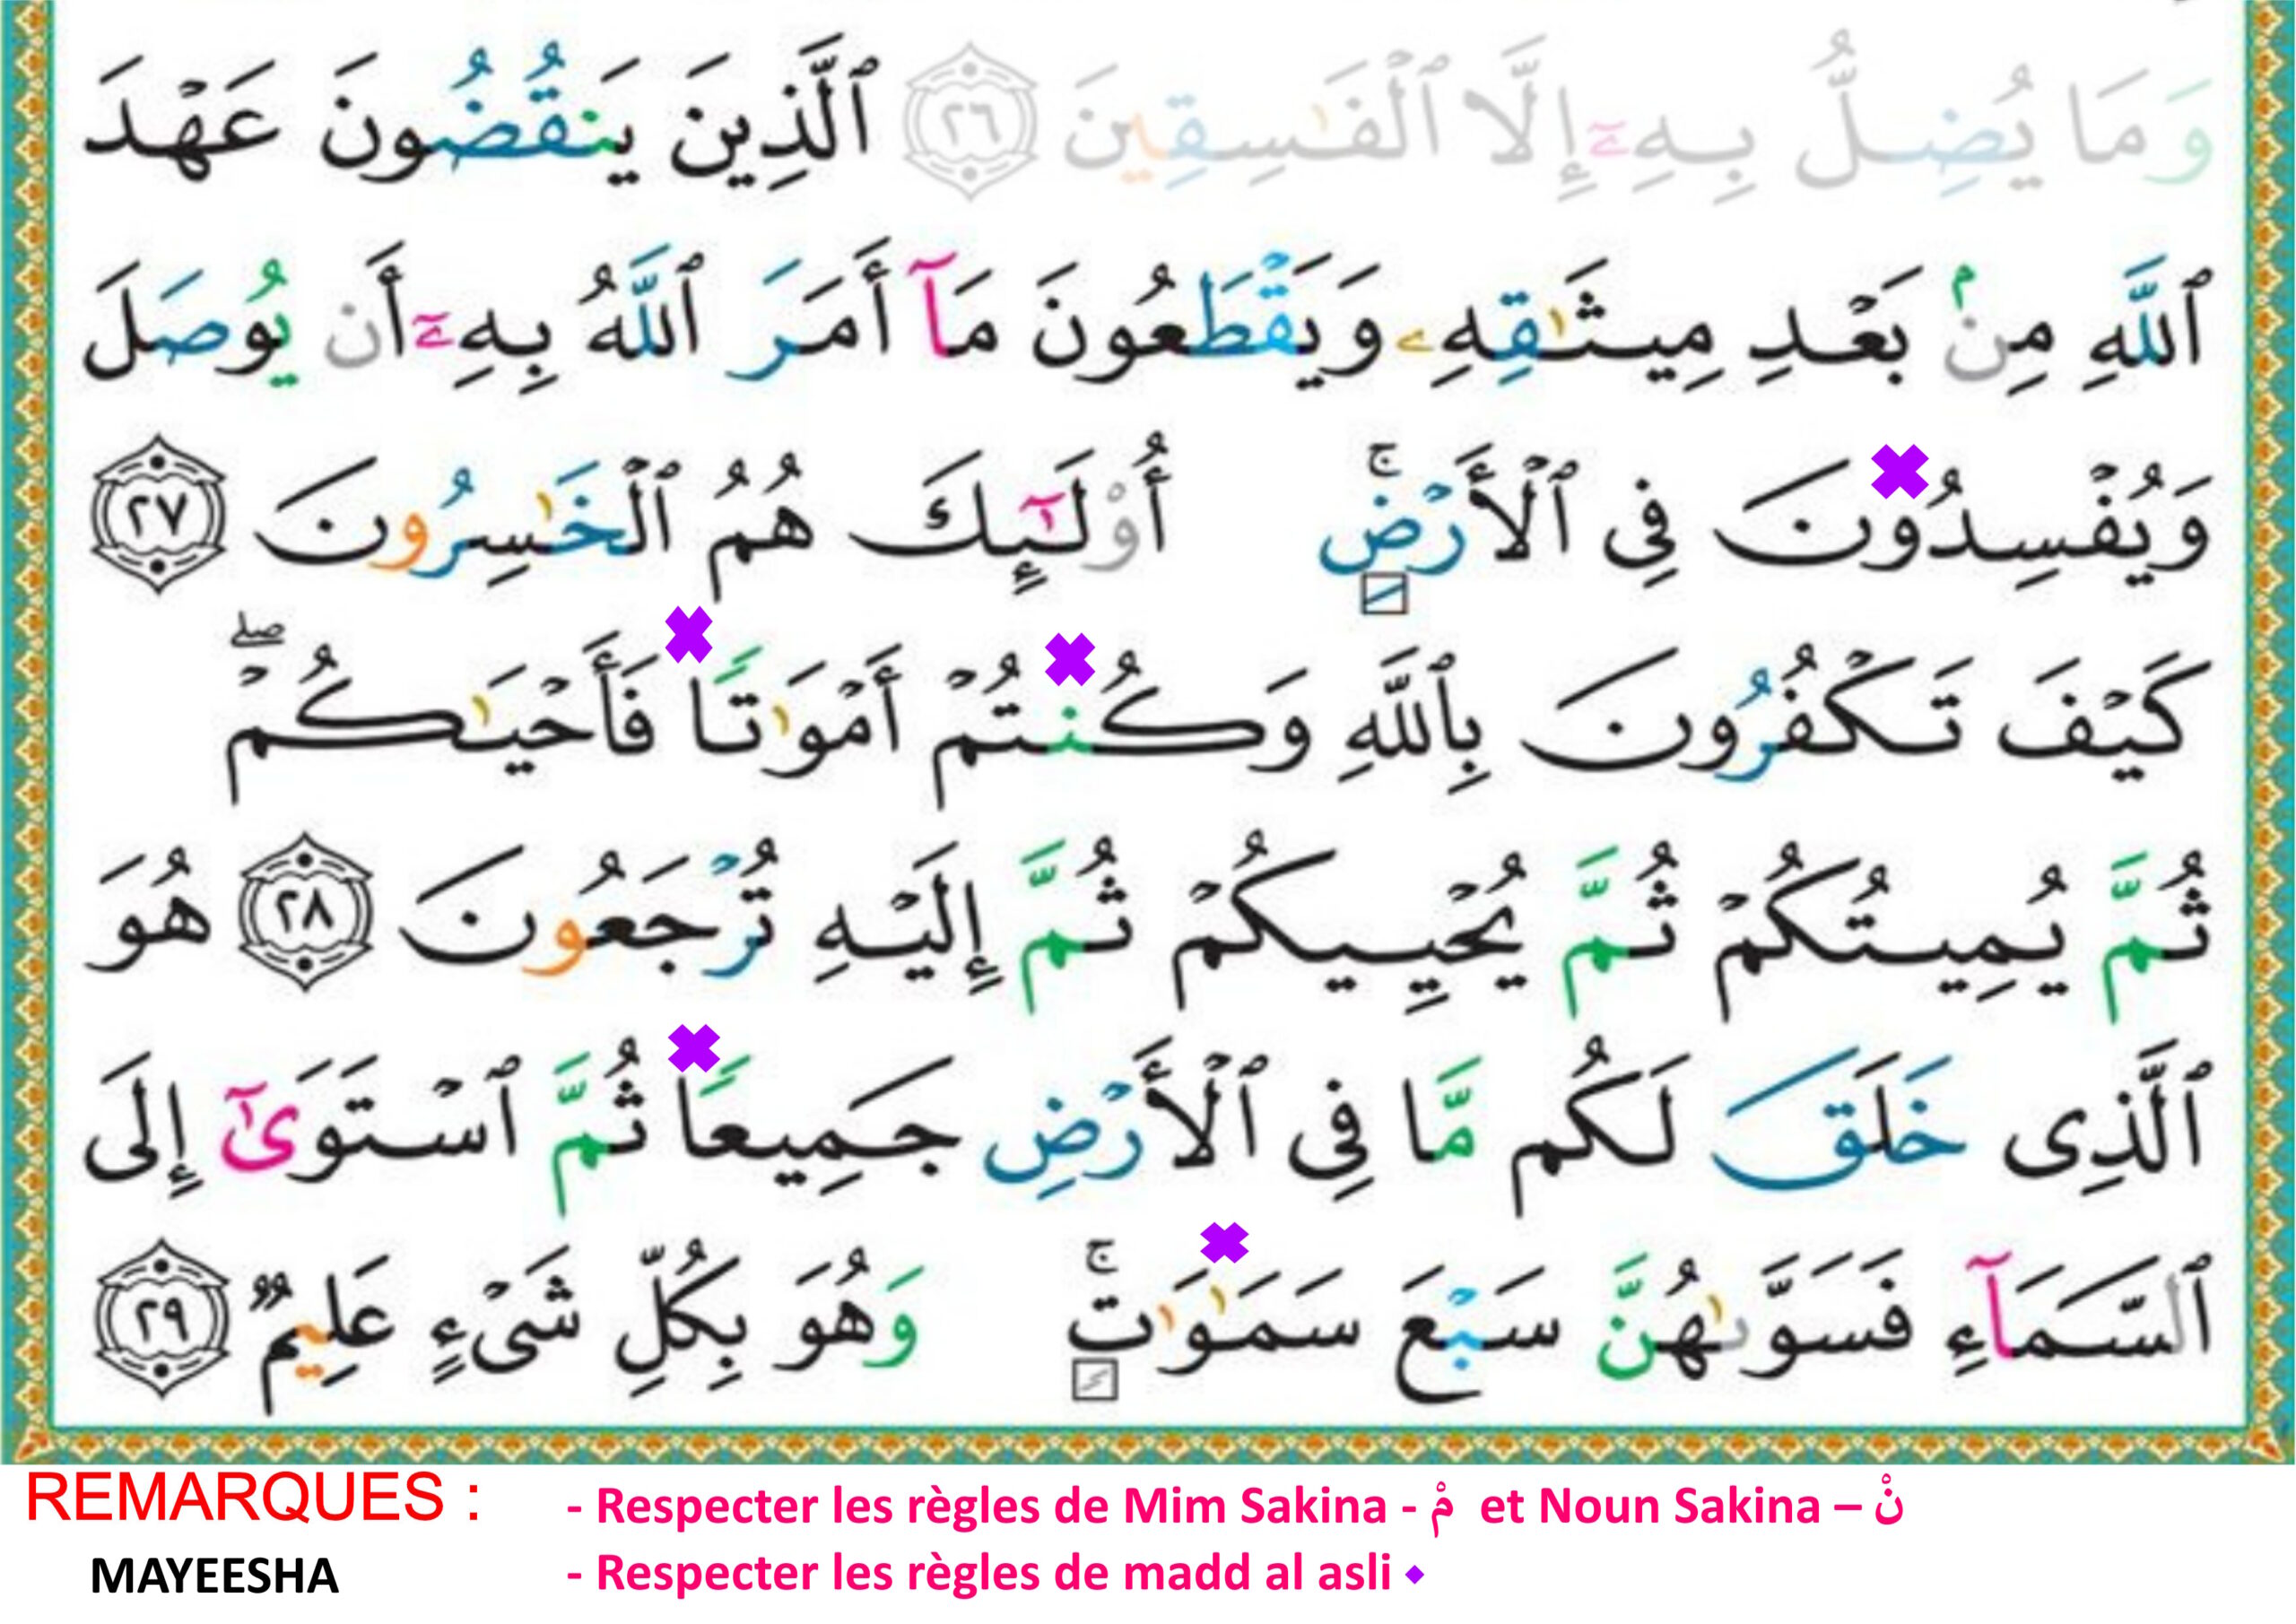 وَمَا يُضِلُّ بِهِۦٓ إِلَّا ٱلْفَـٰسِقِينَ ٢٦ ٱلَّذِينَ يَنقُضُونَ عَهْدَ
ٱللَّهِ مِنۢ بَعْدِ مِيثَـٰقِهِۦ وَيَقْطَعُونَ مَآ أَمَرَ ٱللَّهُ بِهِۦٓ أَن يُوصَلَ
وَيُفْسِدُونَ فِى ٱلْأَرْضِ ۚ أُو۟لَـٰٓئِكَ هُمُ ٱلْخَـٰسِرُونَ ٢٧
كَيْفَ تَكْفُرُونَ بِٱللَّهِ وَكُنتُمْ أَمْوَٰتًا فَأَحْيَـٰكُمْ ۖ
ثُمَّ يُمِيتُكُمْ ثُمَّ يُحْيِيكُمْ ثُمَّ إِلَيْهِ تُرْجَعُونَ ٢٨ هُوَ
ٱلَّذِى خَلَقَ لَكُم مَّا فِى ٱلْأَرْضِ جَمِيعًا ثُمَّ ٱسْتَوَىٰٓ إِلَى
ٱلسَّمَآءِ فَسَوَّىٰهُنَّ سَبْعَ سَمَـٰوَٰتٍ ۚ وَهُوَ بِكُلِّ شَىْءٍ عَلِيمٌ ٢٩
REMARQUES : - Respecter les règles de Mim Sakina - مْ et Noun Sakina – نْ
MAYEESHA - Respecter les règles de madd al asli